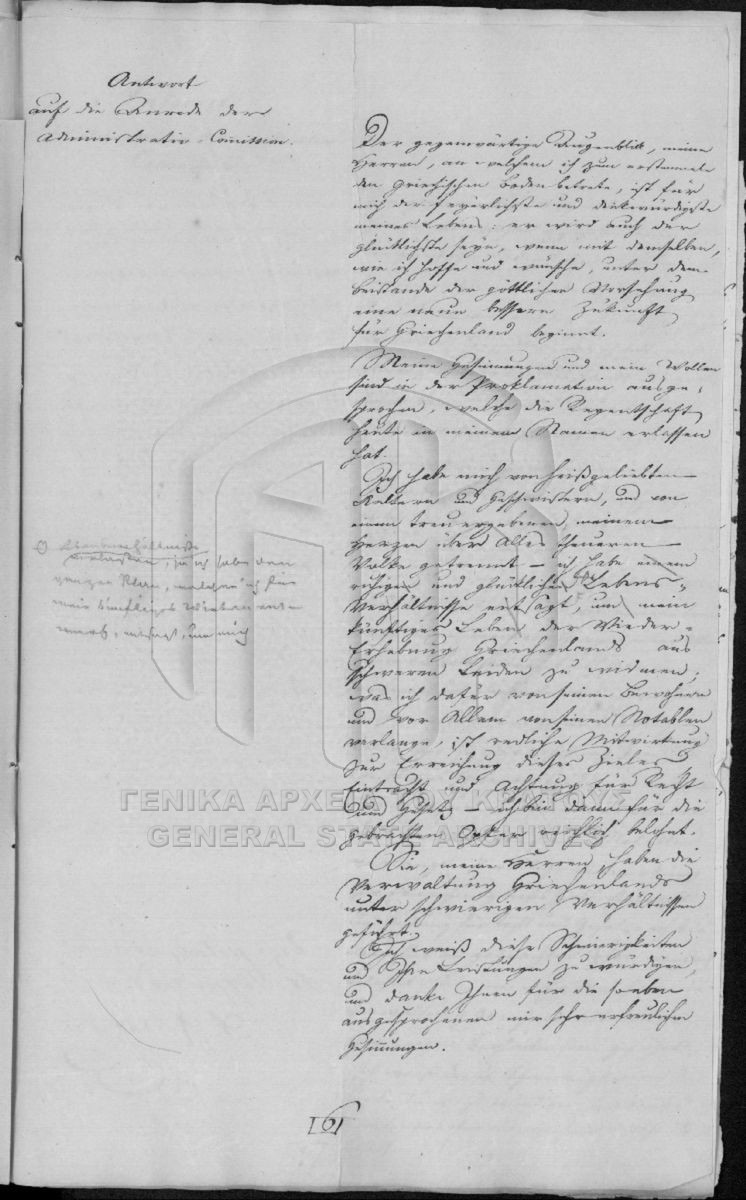 Antwort
auf die Anrede der
Administrativ-Comission.
Der gegenwärtige Augenblick, meine
Herren, an welchem ich zum erstenmale
den griechischen Boden betrete, ist für
mich der feyerlichste und denkwürdigste
meines Lebens; er wird auch der
glücklichste seyn, wenn mit demselben,
wie ich hoffe und wünsche, unter dem
Beistande der göttlichen Vorsehung
eine neue bessere Zukunft
für Griechenland beginnt.
Meine Gesinnungen und mein Wollen
sind in der Proklamation ausge-
sprochen, welche die Regentschaft
heute in meinem Namen erlassen
hat.
Ich habe mich von heißgeliebten
Aeltern und Geschwistern, und von
einem treu ergebenen, meinem
Herzen über Alles theueren
Volke getrennt – ich habe einem
ruhigen und glücklichen Lebens-
Verhältnisse entsagt, um mein
künftiges Leben der Wieder-
Erhebung Griechenlands aus
schweren Leiden zu widmen;
was ich dafür von seinen Bewohnern
und vor Allem von seinen Notablen
verlange, ist redliche Mitwirkung
zur Erreichung dieses Zieles
Eintracht und Achtung für Recht
und Gesetz – ich bin dann für die
gebrachten Opfer reichlich belohnt.
Sie, meine Herren, haben die
Verwaltung Griechenlands
unter schwierigen Verhältnissen
geführt.
Ich weiß diese Schwierigkeiten
und Ihre Leistungen zu würdigen,
und danke Ihnen für die soeben
ausgesprochenen mir sehr erfreulichen
Gesinnungen.
ja ich habe dem
ganzen Plane, welchen ich für
mein künftiges Wirken
entsagt, um mich
ΓΕΝΙΚΑ ΑΡΧΕΙΑ ΤΟΥ ΚΡΑΤΟΥΣ
GENERAL STATE ARCHIVES
[6]